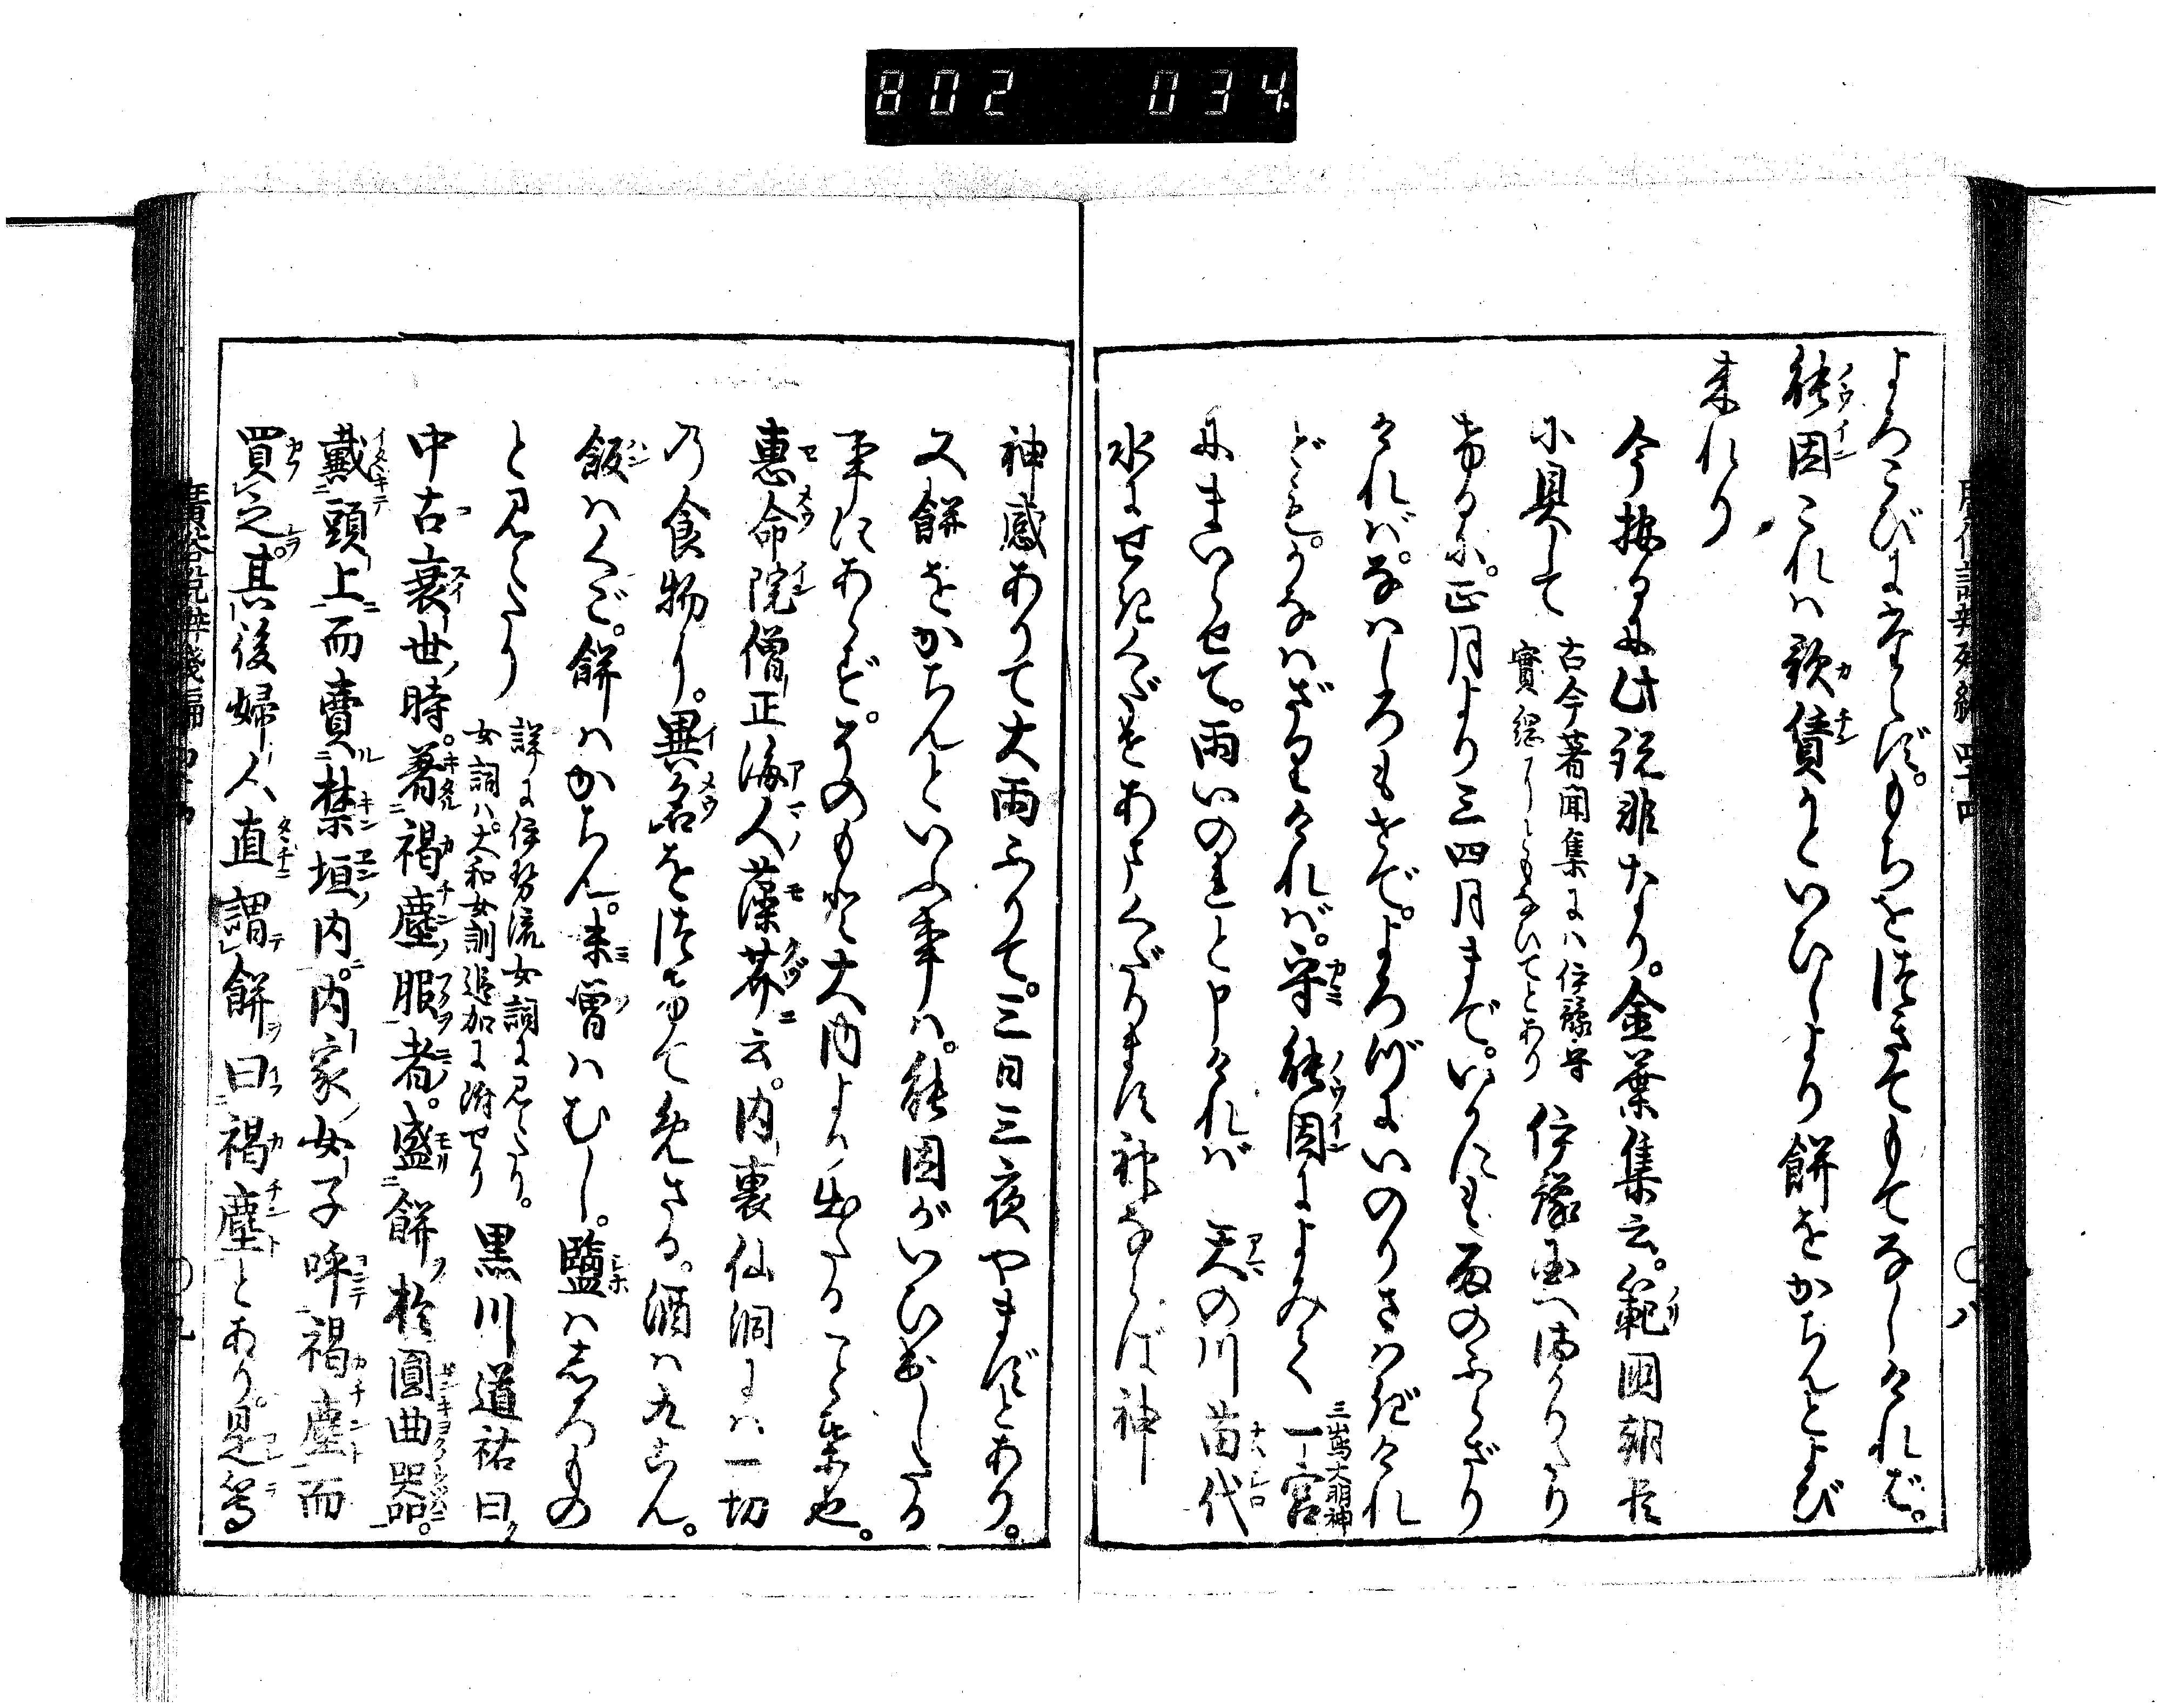 802 034
よろこびにたへず。もちをつきてもてなしければ。
能因これは歌賃かといひしより餅をかちんとよび
来れり
今按るに此説非なり。金葉集云。範国朝臣
に具して 古今著聞集には伊豫守
實綱にともなひてとあり 伊豫国へまかりたり
けるに。正月より三四月まで。いかにも雨のふらざり
ければ。なはしろもせで。よろづにいのりさはぎけれ
ども。かなはざりければ。守能因によみて 一宮 三嶌大明神
にまいらせて。雨いのれと申ければ 天の川苗代
水にせきくだせあまくだります神ならば神
神感ありて大雨ふりて。三日三夜やまずとあり。
又餅をかちんといふ事は。能因がいひ出したる
事にあらず。そのもと大内より出たることば也。
惠命院僧正海人藻芥云。内裏仙洞には一切
乃食物に。異名を付て めさる。酒は九こん。
飯はくご。餅はかちん。未曽はむし。鹽はしろもの
と見えたり 詳に伊勢流女詞に見えたり。
女詞ハ大和女訓追加に附せり 黒川道祐曰
中古衰世時。著褐塵服者。盛餅於圓曲器。
戴頭上而賣禁垣内。内家女子呼褐塵而
買之。其後婦人直謂餅曰褐塵とあり。是等
廣俗説辨殘編 四十四